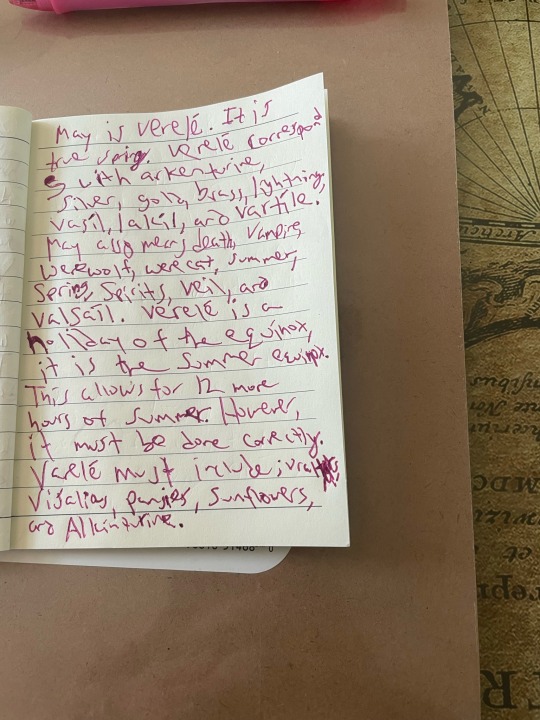 May is Verelé. It is
true spring. Verelé correspond
s with arkenturine,
silver, gold, brass, lightning,
vasil, lalail, and vartile.
May also means death, vampire,
werewolf, werecat, summer,
Spring, Spirits, veil, and
valsail. Verelé is a
holiday of the equinox,
it is the Summer equinox.
This allows for 12 more
hours of summer. However,
it must be done correctly.
Varelé must include;
Visalias, pansies, sunflowers,
and Alkinturine.